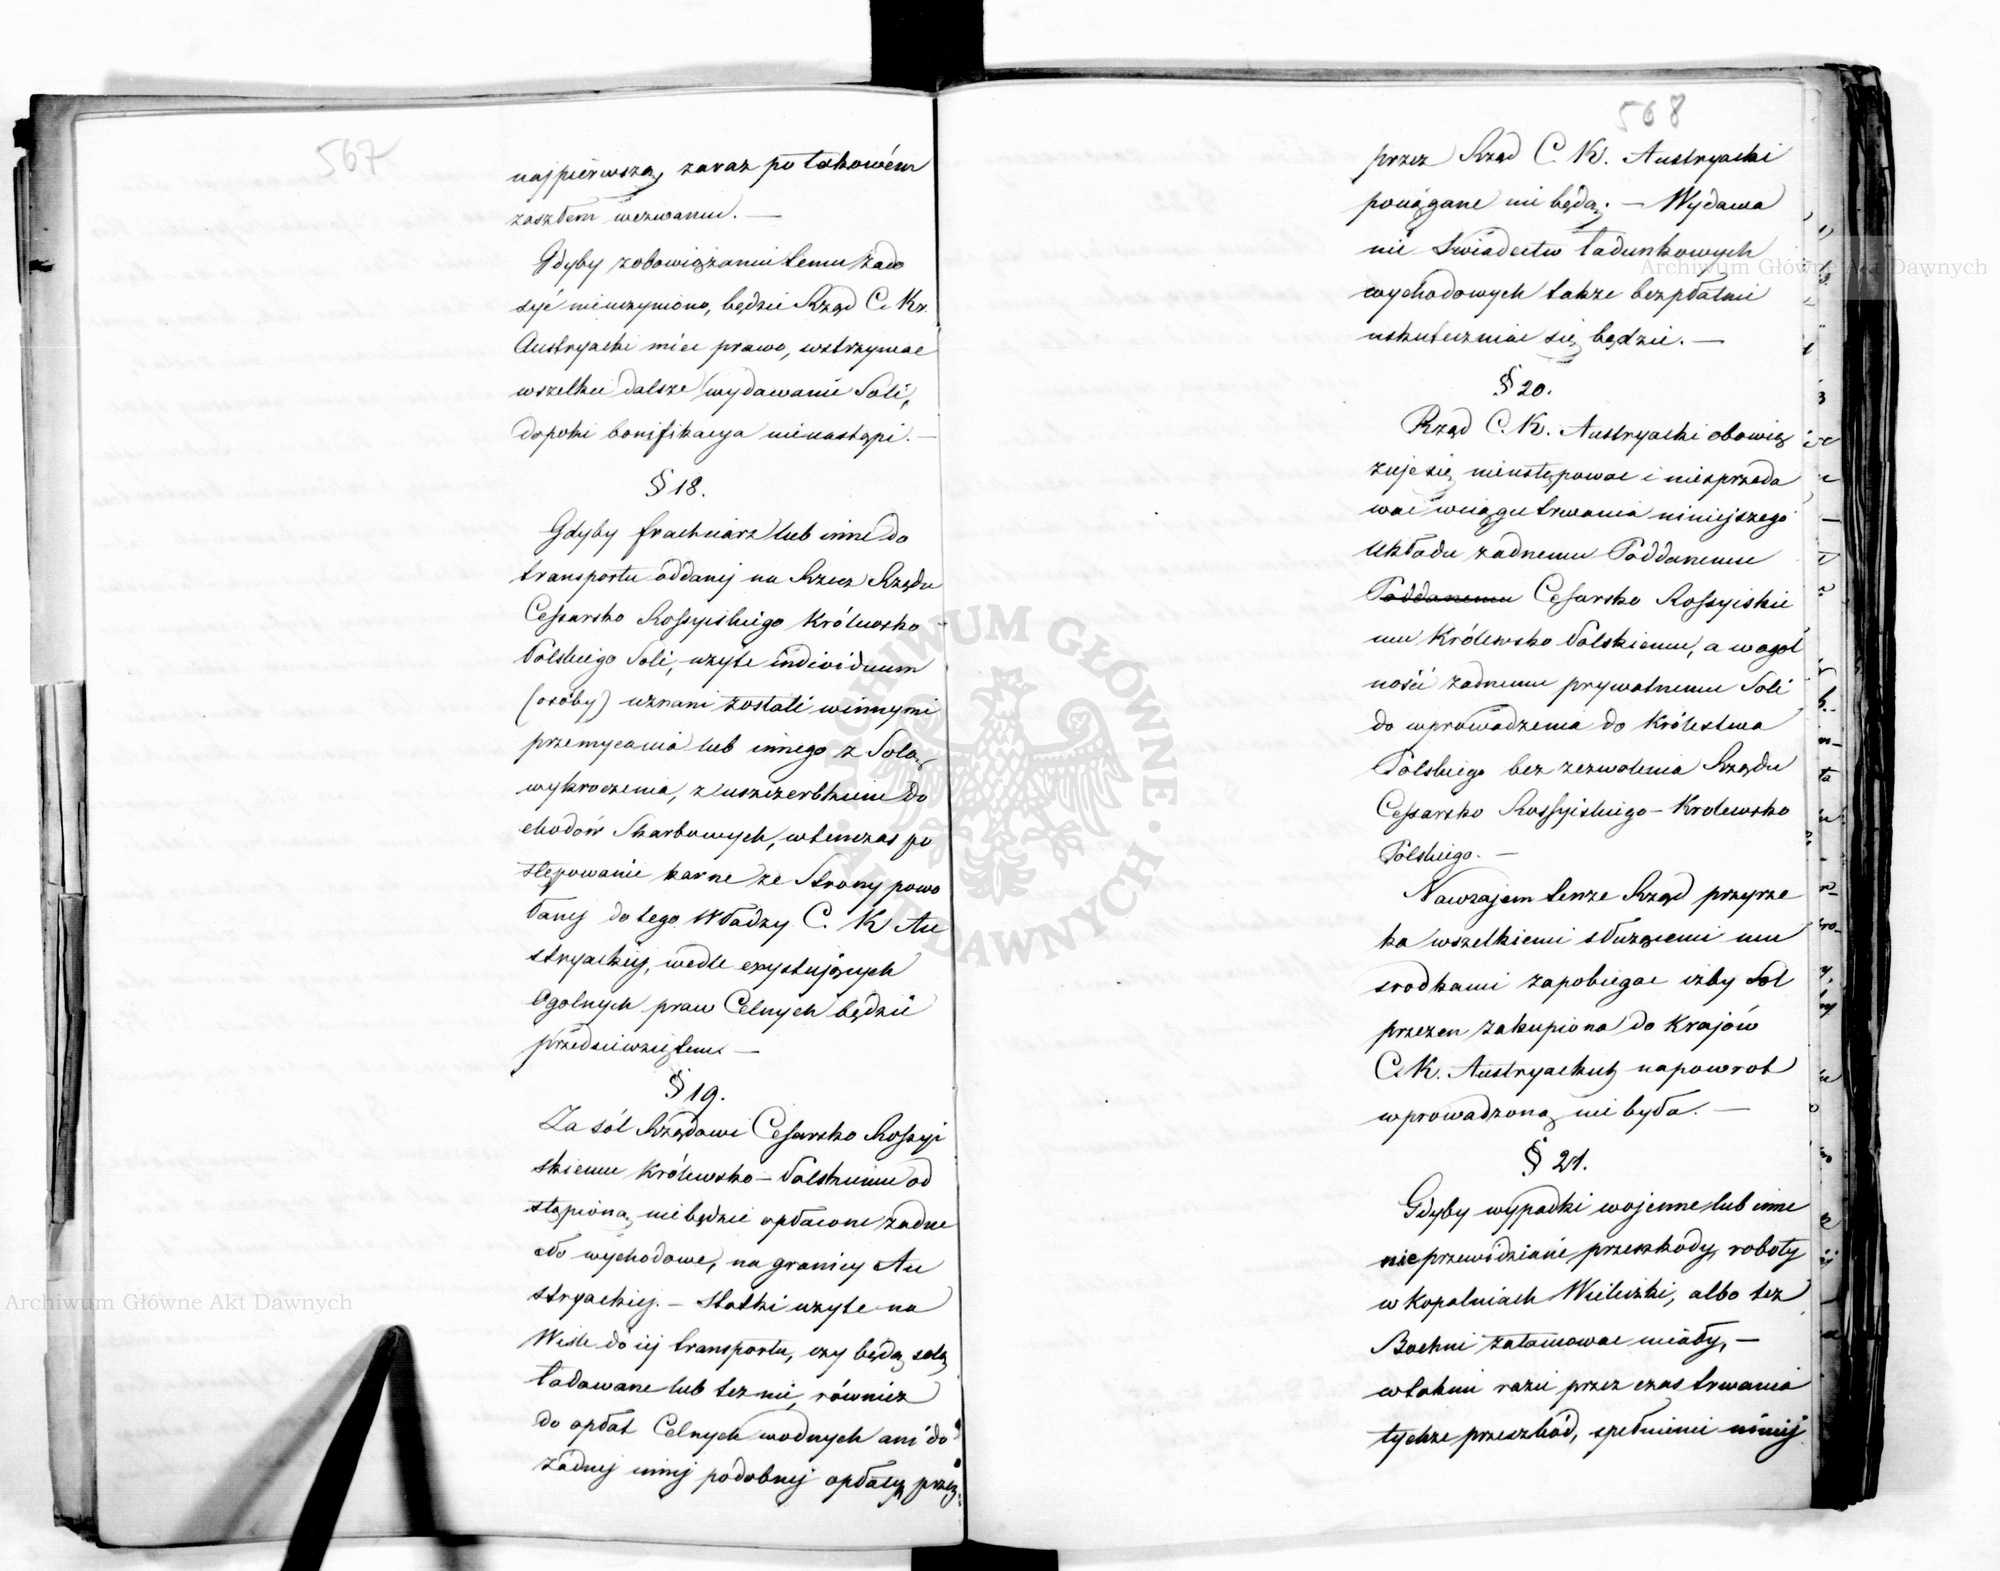 567
najpierwszą, zaraz po takowém
zaszłem wezwaniu. —
Gdyby zobowiązaniu temu zado
syć nieuczyniono, będzie Rząd C. Kr.
Austryacki miec prawo, wstrzymac
wszelkie dalsze wydawanie Soli,
dopoki bonifikacya nienastąpi. —
§ 18.
Gdyby frachciarz lub inne do
transportu oddanej na Rzecz Rządu
Cesarsko Rossyiskiego Królewsko
Polskiego Soli, użyte individuum
(osóby) uznani zostali winnymi
przemycania lub innego z Solą
wykroczenia, z uszczerbkiem do
chodów Skarbowych, wtenczas po
stępowanie karne ze Strony powo
łanej do tego Władzy C. K. Au
stryackiej, wedle exystujących
Ogolnych praw Celnych będzie
przedsiewziętem. —
§ 19.
Za sól Rządowi Cesarsko Rossyi
skiemu Królewsko – Polskiemu od
stąpioną, niebędzie opłacone żadne
cło wychodowe, na granicy Au
stryackiej. – Statki użyte na
Wiśle do iej transportu, czy będą solą
ładowane lub tez nie, równiez
do opłat Celnych wodnych ani do
żadnej innej podobnej opłaty przez
568
przez Rząd C. K. Austryacki
pociągane nie będą. – Wydawa
nie Swiadectw ładunkowych
wychodowych takze bezpłatnie
uskuteczniac się będzie. —
§ 20.
Rząd C. K. Austryacki obowią
zuje się nieustępowac i niesprzeda
wac wciągu trwania niniejszego
Układu zadnemu Poddanemu
Poddanemu Cesarsko Rossyiskie
mu Królewsko Polskiemu, a w ogol
ności zadnemu prywatnemu Soli
do wprowadzenia do Królestwa
Polskiego bez zezwolenia Rządu
Cesarsko Rossyiskiego – Krolewsko
Polskiego. —
Nawzajem tenze Rząd przyrze
ka wszelkiemi słuzącemi mu
srodkami zapobiegac izby Sol
przezen zakupiona do Krajów
C. K. Austryackich napowrot
wprowadzoną nie była. —
§ 21.
Gdyby wypadki wojenne lub inne
nieprzewidziane przeszkody, roboty
w Kopalniach Wieliczki, albo tez
Bochni zatamowac miały, —
w takim razie przez czas trwania
tychze przeszkód, spełnienie niniej
Archiwum Główne Akt Dawnych
Archiwum Główne Akt Dawnych
ARCHIWUM GŁÓWNE AKT DAWNYCH